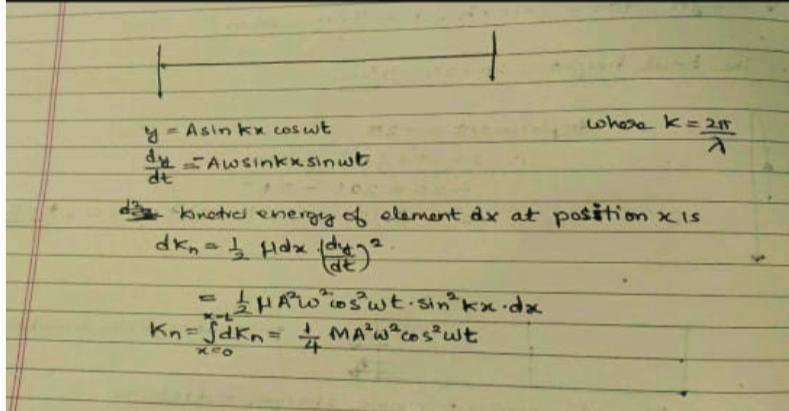 y = A sin kx cos ωt where k = 2π/λ
dy/dt = -Aω sin kx sin ωt
kinetic energy of element dx at position x is
dKn = 1/2 μdx (dy/dt)²
= 1/2 μA²ω² cos² ωt · sin² kx · dx
Kn = ∫ₓ₌₀ˣ⁼ᴸ dKn = 1/4 MA²ω² cos² ωt